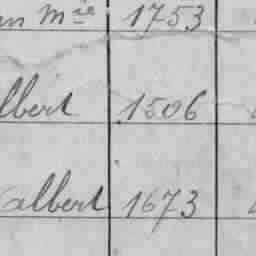 un Mie 1753
lbert 1506
Calbert 1673